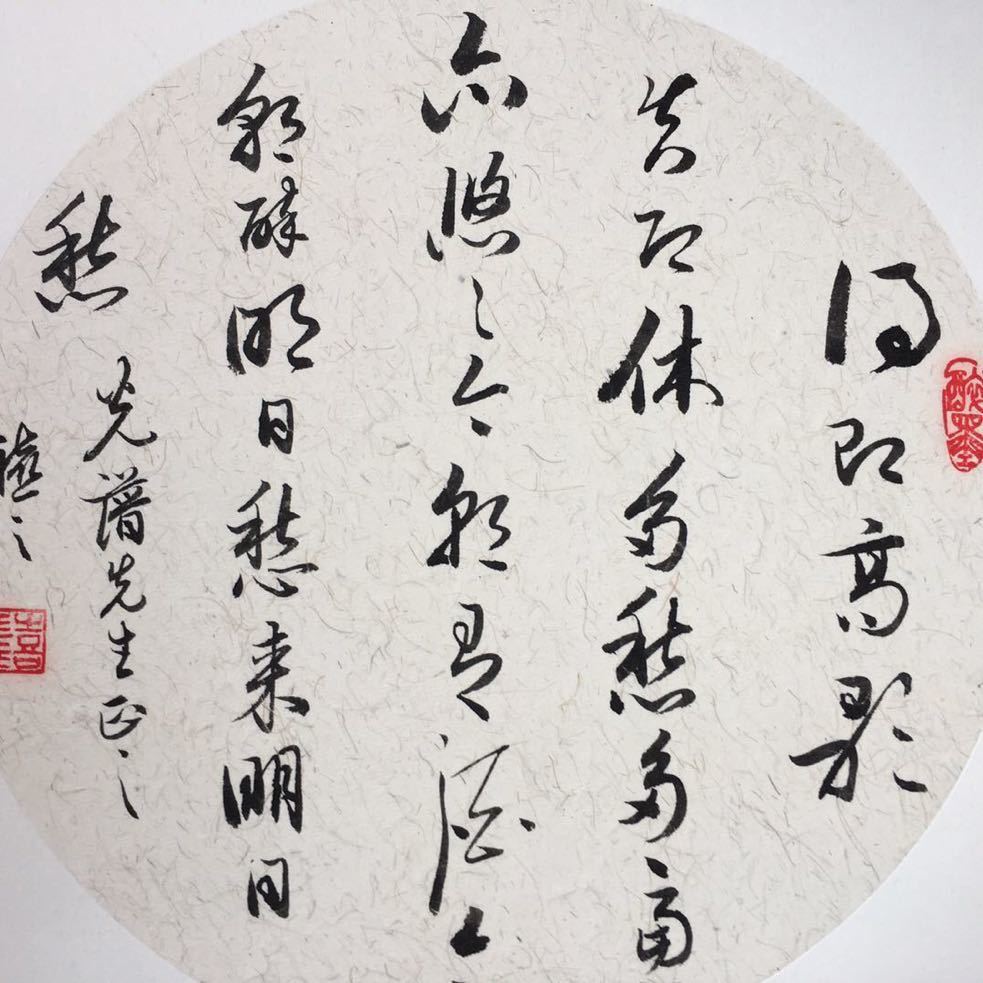 得即高歌
失即休多愁多
亦悠々今朝有酒今
朝醉明日愁来明日
愁 光譜先生正之
之